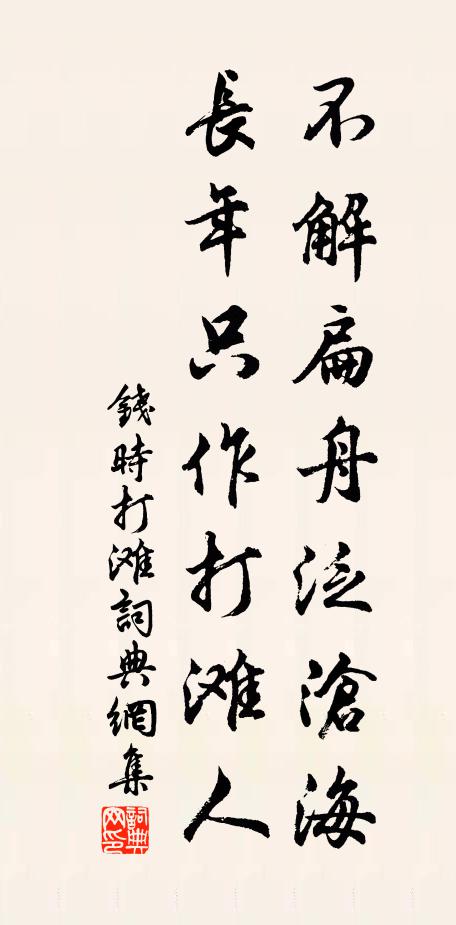 不解扁舟泛滄海
長年只作打滩人
錢時打滩詞典網集
詞典网印